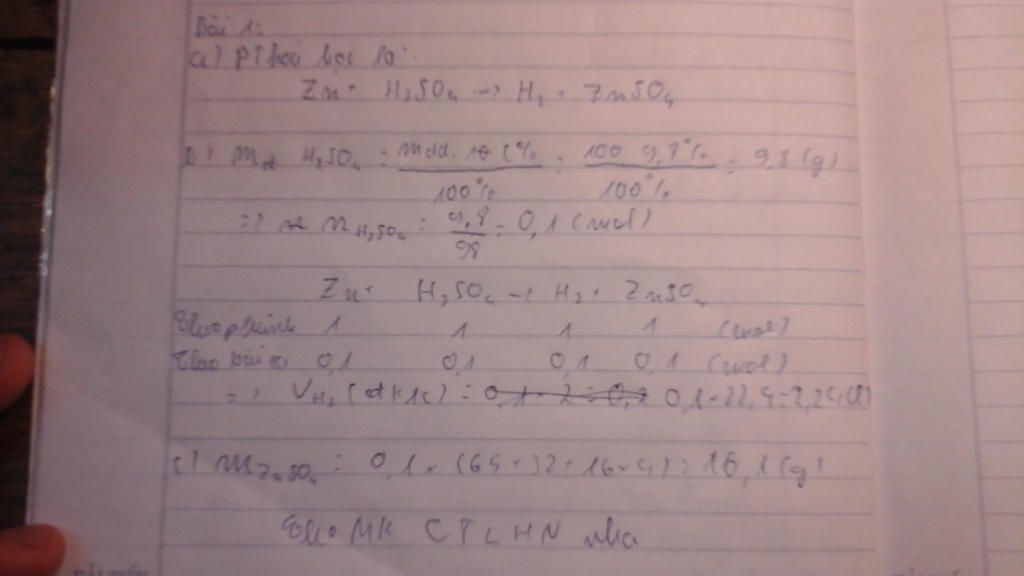 Bài 1:
a) PT hoá học là:
Zn + H₂SO₄ → H₂ + ZnSO₄
b) m H₂SO₄ = mdd. C% / 100% = 100 9,8% / 100% = 9,8 (g)
=) n H₂SO₄ = 9,8 / 98 = 0,1 (mol)
Zn + H₂SO₄ → H₂ + ZnSO₄
Theo 1 1 1 1 (mol)
Theo bài ra 0,1 0,1 0,1 0,1 (mol)
=) V H₂ (đktc) = 0,1 . 22,4 = 2,24 (l)
c) m ZnSO₄ = 0,1 × (65 + 32 + 16 × 4) = 16,1 (g)
Cho MK CTLHN nha